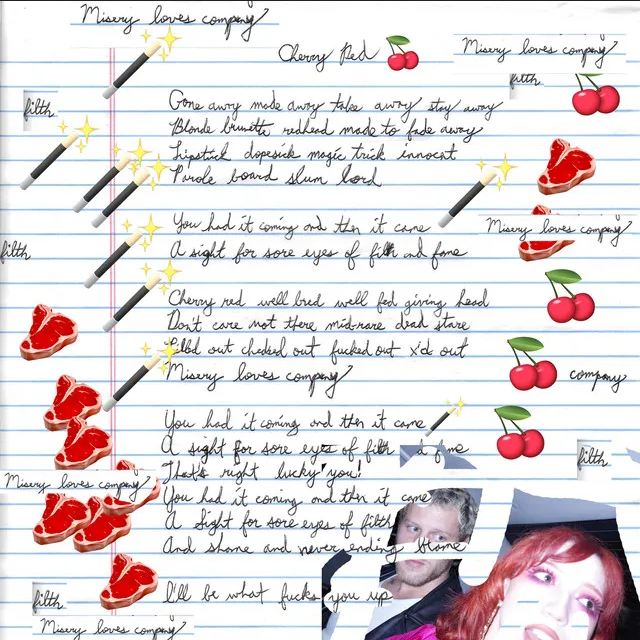 Misery loves company
Cherry Red
Misery loves company
filth
filth
Gone away made away take away stay away
Blonde brunette redhead made to fade away
Lipstick dopesick magic trick innocent
Parole board slum lord
You had it coming and then it came
Misery loves company
A sight for sore eyes of filth and fame
filth
Cherry red well bred well fed giving head
Don't care not there mid-rare dead stare
out checked out fucked out x'd out
Misery loves company
company
You had it coming and then it came
A sight for sore eyes of filth d fame
filth
That's right lucky you!
Misery loves company
You had it coming and then it came
A sight for sore eyes of filth
And shame and never ending blame
I'll be what fucks you up
filth
Misery loves company